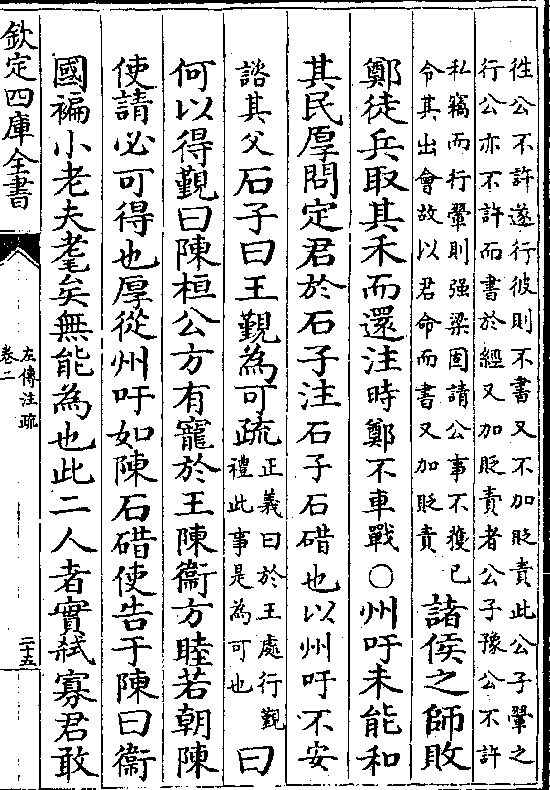 往公不許遂行彼則不書又不加貶責此公子翬之
行公亦不許而書於經又加貶責者公子豫公不許
私竊而行翬則强梁固請公事不獲已
令其出會故以君命而書又加貶責
諸侯之師敗
鄭徒兵取其禾而還注時鄭不車戰○州吁未能和
其民厚問定君於石子注石子石碏也以州吁不安
諮其父石子曰王覲為可疏
正義曰於王處行覲
禮此事是為可也
曰
何以得覲曰陳桓公方有寵於王陳衞方睦若朝陳
使請必可得也厚從州吁如陳石碏使告于陳曰衞
國褊小老夫耄矣無能為也此二人者實弒寡君敢
欽定四庫全書
左傳注疏
卷二
二十五